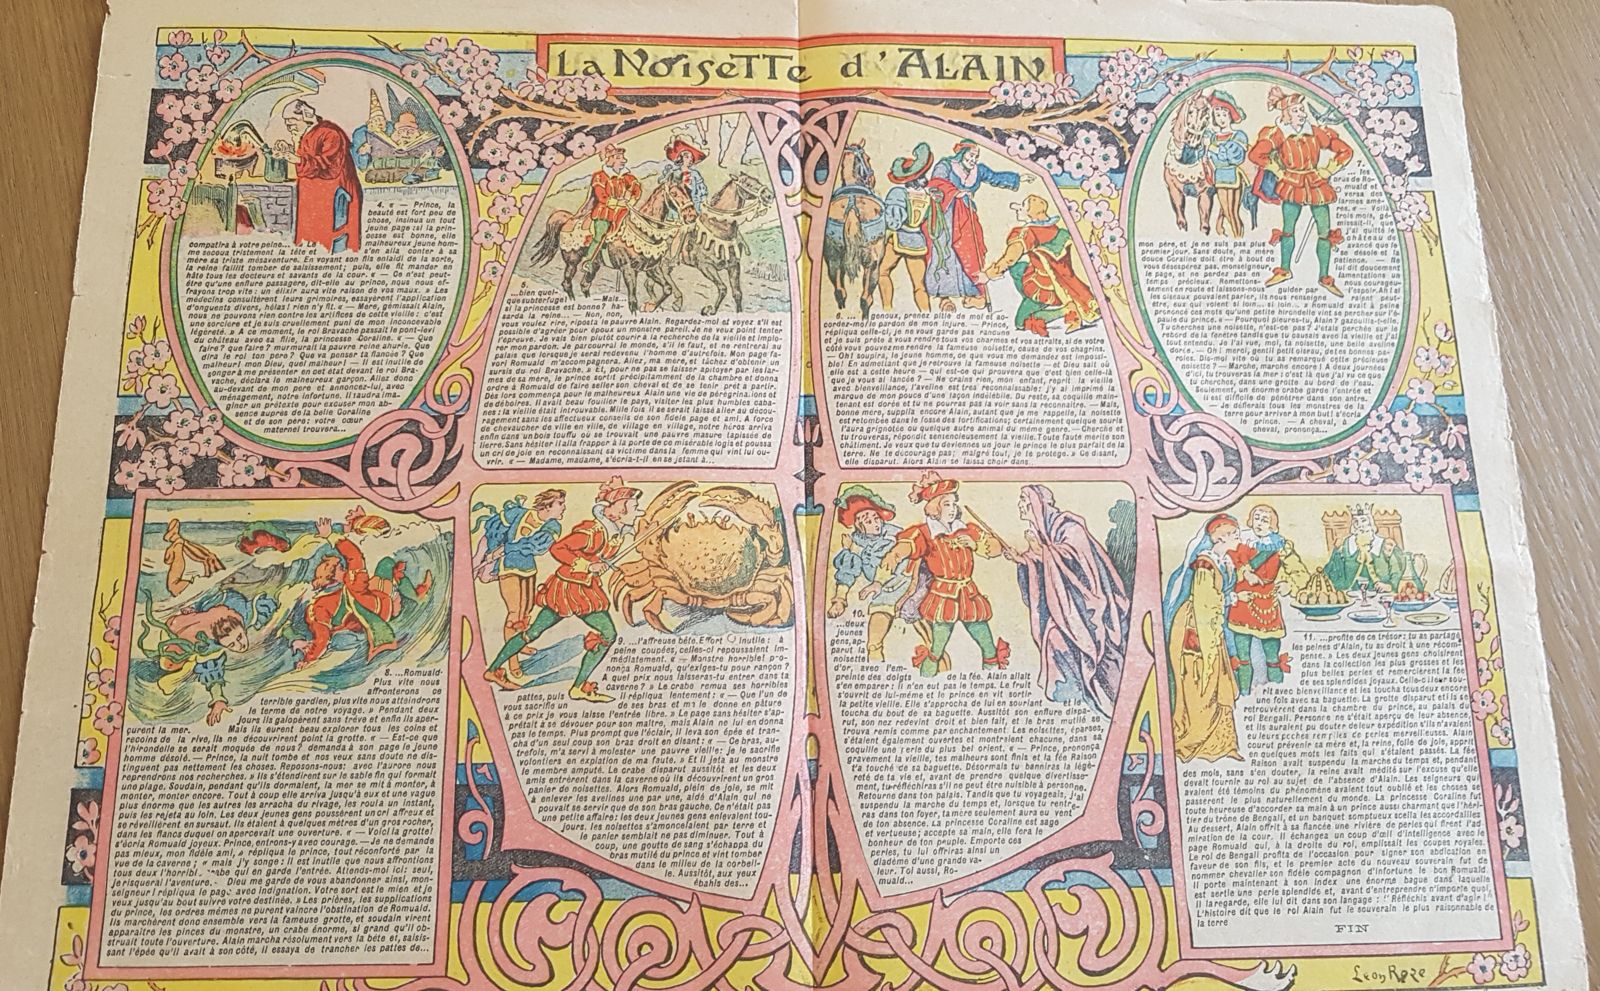 La Noisette d'Alain
4. « — Prince, la
beauté est fort peu de
chose, insinua un tout
jeune page : si la prin-
cesse est bonne, elle
compatira à votre peine... » Le malheureux jeune hom-
me secoua tristement la tête et s'en alla conter à sa
mère sa triste mésaventure. En voyant son fils enlaidi de la sorte,
la reine faillit tomber de saisissement ; puis, elle fit mander en
hâte tous les docteurs et savants de la cour. « — Ce n'est peut-
être qu'une enflure passagère, dit-elle au prince, nous nous ef-
frayons trop vite : un élixir aura vite raison de vos maux. » Les
médecins consultèrent leurs grimoires, essayèrent l'application
d'onguents divers, hélas ! rien n'y fit. « — Mère, gémissait Alain,
nous ne pouvons rien contre les artifices de cette vieille : c'est
une sorcière et je suis cruellement puni de mon inconcevable
légèreté. » A ce moment, le roi Bravache passait le pont-levi
du château avec sa fille, la princesse Coraline. « — Que
faire ? que faire ? murmurait la pauvre reine ahurie. Que
dira le roi ton père ? Que va penser ta fiancée ? Que
malheur! mon Dieu, quel malheur ! — Il est inutile de
songer à me présenter en cet état devant le roi Bra-
vache, déclara le malheureux garçon. Allez donc
au-devant de mon père et annoncez-lui, avec
ménagement, notre infortune. Il faudra ima-
giner un prétexte pour excuser mon ab-
sence auprès de la belle Coraline
et de son père : votre cœur
maternel trouvera...
5.
...bien quel-
que subterfuge ! — Mais...
si la princesse est bonne ? ha-
sarda la reine... — Non, non,
vous voulez rire, riposta le pauvre Alain. Regardez-moi et voyez s'il est
possible d'agréer pour époux un monstre pareil. Je ne veux point tenter
l'épreuve. Je vais bien plutôt courir à la recherche de la vieille et implo-
rer mon pardon. Je parcourai le monde, s'il le faut, et ne rentrerai au
palais que lorsque je serai redevenu l'homme d'autrefois. Mon page fa-
vori Romuald m'accompagnera. Allez, ma mère, et tâchez d'obtenir un
sursis du roi Bravache. » Et, pour ne pas se laisser apitoyer par les lar-
mes de sa mère, le prince sortit précipitamment de la chambre et donna
ordre à Romuald de faire seller son cheval et de se tenir prêt à partir.
Dès lors commença pour le malheureux Alain une vie de pérégrinations et
de déboires. Il avait beau fouiller le pays, visiter les plus humbles caba-
nes : la vieille était introuvable. Mille fois il se serait laissé aller au décou-
ragement sans les affectueux conseils de son fidèle page et ami. A force
de chevaucher de ville en ville, de village en village, notre héros arriva
enfin dans un bois touffu où se trouvait une pauvre masure tapissée de
lierre. Sans hésiter il alla frapper à la porte de ce misérable logis et poussa
un cri de joie en reconnaissant sa victime dans la femme qui vint lui ou-
vrir. « — Madame, madame, s'écria-t-il en se jetant à...
6. ...genoux, prenez pitié de moi et ac-
cordez-moi le pardon de mon injure. — Prince,
répliqua celle-ci, je ne vous garde pas rancune
et je suis prête à vous rendre tous vos charmes et vos attraits, si de votre
côté vous pouvez me rendre la fameuse noisette, cause de vos chagrins.
— Oh ! soupira, le jeune homme, ce que vous me demandez est impossi-
ble ! En admettant que je retrouve la fameuse noisette — et Dieu sait où
elle est à cette heure — qui est-ce qui prouvera que c'est bien celle-là
que je vous ai lancée ? — Ne crains rien, mon enfant, reprit la vieille
avec bienveillance, l'aveline est reconnaissable : j'y ai imprimé la
marque de mon pouce d'une façon indélébile. Du reste, sa coquille main-
tenant est dorée et tu ne pourras pas la voir sans la reconnaître. — Mais,
bonne mère, supplia encore Alain, autant que je me rappelle, la noisette
est retombée dans le fossé des fortifications ; certainement quelque souris
l'aura grignotée ou quelque autre animal du même genre. — Cherche et
tu trouveras, répondit sentencieusement la vieille. Toute faute mérite son
châtiment. Je veux que tu deviennes un jour le prince le plus parfait de la
terre. Ne te décourage pas ; malgré tout, je te protège. » Ce disant,
elle disparut. Alors Alain se laissa choir dans...
7.
...les
bras de Ro-
muald et
versa des
larmes amè-
res. « — Voilà
trois mois, gé-
missait-il, que
j'ai quitté le
château de
mon père, et je ne suis pas plus avancé que le
premier jour. Sans doute, ma mère se désole et la
douce Coraline doit être à bout de patience. — Ne
vous désespérez pas, monseigneur, lui dit doucement
le page, et ne perdez pas en lamentations un
temps précieux. Remettons- nous courageu-
sement en route et laissons-nous guider par l'espoir. Ah ! si
les oiseaux pouvaient parler, ils nous renseigne raient peut-
être, eux qui volent si loin... si loin... » Romuald avait à peine
prononcé ces mots qu'une petite hirondelle vint se percher sur l'é-
paule du prince. « — Pourquoi pleures-tu, Alain ? gazouilla-t-elle.
Tu cherches une noisette, n'est-ce pas ? J'étais perchée sur le
rebord de la fenêtre tandis que tu causais avec la vieille et j'ai
tout entendu. Je l'ai vue, moi, ta noisette, une belle aveline
dorée. — Oh ! merci, gentil petit oiseau, de tes bonnes pa-
roles. Dis-moi vite où tu as remarqué cette précieuse
noisette ? — Marche, marche encore ! A deux journées
d'ici, tu trouveras la mer : c'est là que j'ai vu ce que
tu cherches, dans une grotte au bord de l'eau.
Seulement, un énorme crabe garde l'entrée et
il est difficile de pénétrer dans son antre.
— Je défierais tous les monstres de la
terre pour arriver à mon but ! s'écria
le prince. — A cheval, à
cheval, prononça...
8. ...Romuald.
Plus vite nous
affronterons ce
terrible gardien, plus vite nous atteindrons
le terme de notre voyage. » Pendant deux
jours ils galopèrent sans trêve et enfin ils aper-
çurent la mer. Mais ils eurent beau explorer tous les coins et
recoins de la rive, ils ne découvrirent point la grotte. « — Est-ce que
l'hirondelle se serait moquée de nous ? demanda à son page le jeune
homme désolé. — Prince, la nuit tombe et nos yeux sans doute ne dis-
tinguent pas nettement les choses. Reposons-nous : avec l'aurore nous
reprendrons nos recherches. » Ils s'étendirent sur le sable fin qui formait
une plage. Soudain, pendant qu'ils dormaient, la mer se mit à monter, à
monter, monter encore. Tout à coup elle arriva jusqu'à eux et une vague
plus énorme que les autres les arracha du rivage, les roula un instant,
puis les rejeta au loin. Les deux jeunes gens poussèrent un cri affreux et
se réveillèrent en sursaut. Ils étaient à quelques mètres d'un gros rocher,
dans les flancs duquel on apercevait une ouverture. « — Voici la grotte !
s'écria Romuald joyeux. Prince, entrons-y avec courage. — Je ne demande
pas mieux, mon fidèle ami, » répliqua le prince, tout réconforté par la
vue de la caverne ; « mais j'y songe : il est inutile que nous affrontions
tous deux l'horrible crabe qui en garde l'entrée. Attends-moi ici : seul,
je risquerai l'aventure. — Dieu me garde de vous abandonner ainsi, mon-
seigneur ! répliqua le page avec indignation. Votre sort est le mien et je
veux jusqu'au bout suivre votre destinée. » Les prières, les supplications
du prince, les ordres mêmes ne purent vaincre l'obstination de Romuald.
Ils marchèrent donc ensemble vers la fameuse grotte, et soudain virent
apparaître les pinces du monstre, un crabe énorme, si grand qu'il ob-
struait toute l'ouverture. Alain marcha résolument vers la bête et, saisis-
sant l'épée qu'il avait à son côté, il essaya de trancher les pattes de...
9. ...l'affreuse bête. Effort inutile : à
peine coupées, celles-ci repoussaient im-
médiatement. « — Monstre horrible! pro-
nonça Romuald, qu'exiges-tu pour rançon ?
A quel prix nous laisseras-tu entrer dans ta
caverne ? » Le crabe remua ses horribles
pattes, puis il répliqua lentement : « — Que l'un de
vous sacrifie un de ses bras et me le donne en pâture
à ce prix je vous laisse l'entrée libre. » Le page sans hésiter s'ap-
prêtait à se dévouer pour son maître, mais Alain ne lui en donna
pas le temps. Plus prompt que l'éclair, il leva son épée et tran-
cha d'un seul coup son bras droit en disant : « — Ce bras, au-
trefois, m'a servi à molester une pauvre vieille : je le sacrifie
volontiers en expiation de ma faute. » Et il jeta au monstre
le membre amputé. Le crabe disparut aussitôt et les deux
amis entrèrent dans la caverne où ils découvrirent un gros
panier de noisettes. Alors Romuald, plein de joie, se mit
à enlever les avelines une par une, aidé d'Alain qui ne
pouvait se servir que de son bras gauche. Ce n'était pas
une petite affaire : les deux jeunes gens enlevaient tou-
jours, les noisettes s'amoncelaient par terre et
le panier semblait ne pas diminuer. Tout à
coup, une goutte de sang s'échappa du
bras mutilé du prince et vint tomber
dans le milieu de la corbeil-
le. Aussitôt, aux yeux
ébahis des...
10.
...deux
jeunes
gens, ap-
parut la
noisette
d'or, avec l'em-
preinte des doigts de la fée. Alain allait
s'en emparer : il n'en eut pas le temps. Le fruit
s'ouvrit de lui-même et le prince en vit sortir
la petite vieille. Elle s'approcha de lui en souriant et le
toucha du bout de sa baguette. Aussitôt son enflure dispa-
rut, son nez redevint droit et bien fait, et le bras mutilé se
trouva remis comme par enchantement. Les noisettes, éparses,
s'étaient également ouvertes et montraient chacune, dans sa
coquille une perle du plus bel orient. « — Prince, prononça
gravement la vieille, tes malheurs sont finis et la fée Raison
t'a touché de sa baguette. Désormais tu banniras la légè-
reté de ta vie et, avant de prendre quelque divertisse-
ment, tu réfléchiras s'il ne peut être nuisible à personne.
Retourne dans ton palais. Tandis que tu voyageais, j'ai
suspendu la marche du temps et, lorsque tu rentre-
ras dans ton foyer, ta mère seulement aura eu vent
de ton absence. La princesse Coraline est sage
et vertueuse ; accepte sa main, elle fera le
bonheur de ton peuple. Emporte ces
perles, tu lui offriras ainsi un
diadème d'une grande va-
leur. Toi aussi, Ro-
muald...
11. ...profite de ce trésor : tu as partagé
les peines d'Alain, tu as droit à une récom-
pense. » Les deux jeunes gens choisirent
dans la collection les plus grosses et les
plus belles perles et remercièrent la fée
de ses splendides joyaux. Celle-ci leur sou-
rit avec bienveillance et les toucha tous deux encore
une fois avec sa baguette. La grotte disparut et ils se
retrouvèrent dans la chambre du prince, au palais du
roi Bengali. Personne ne s'était aperçu de leur absence,
et ils auraient pu douter de leur expédition s'ils n'avaient
eu leurs poches remplies de perles merveilleuses. Alain
courut prévenir sa mère et, la reine, folle de joie, apprit
en quelques mots les faits qui s'étaient passés. La fée
Raison avait suspendu la marche du temps et, pendant
des mois, sans s'en douter, la reine avait médité sur l'excuse qu'elle
devait fournir au roi au sujet de l'absence d'Alain. Les seigneurs qui
avaient été témoins du phénomène avaient tout oublié et les choses se
passèrent le plus naturellement du monde. La princesse Coraline fut
toute heureuse d'accorder sa main à un prince aussi charmant que l'héri-
tier du trône de Bengali, et un banquet somptueux scella les accordailles
Au dessert, Alain offrit à sa fiancée une rivière de perles qui firent l'ad-
miration de la cour. Il échangea un coup d'œil d'intelligence avec le
page Romuald qui, à la droite du roi, emplissait les coupes royales.
Le roi de Bengali profita de l'occasion pour signer son abdication en
faveur de son fils, et le premier acte du nouveau souverain fut de
nommer chevalier son fidèle compagnon d'infortune le bon Romuald.
Il porte maintenant à son index une énorme bague dans laquelle
est sertie une perle splendide et, avant d'entreprendre n'importe quoi,
il la regarde, elle lui dit dans son langage : " Réfléchis avant d'agir ! "
L'histoire dit que le roi Alain fut le souverain le plus raisonnable de
la terre
FIN
Leon Roze